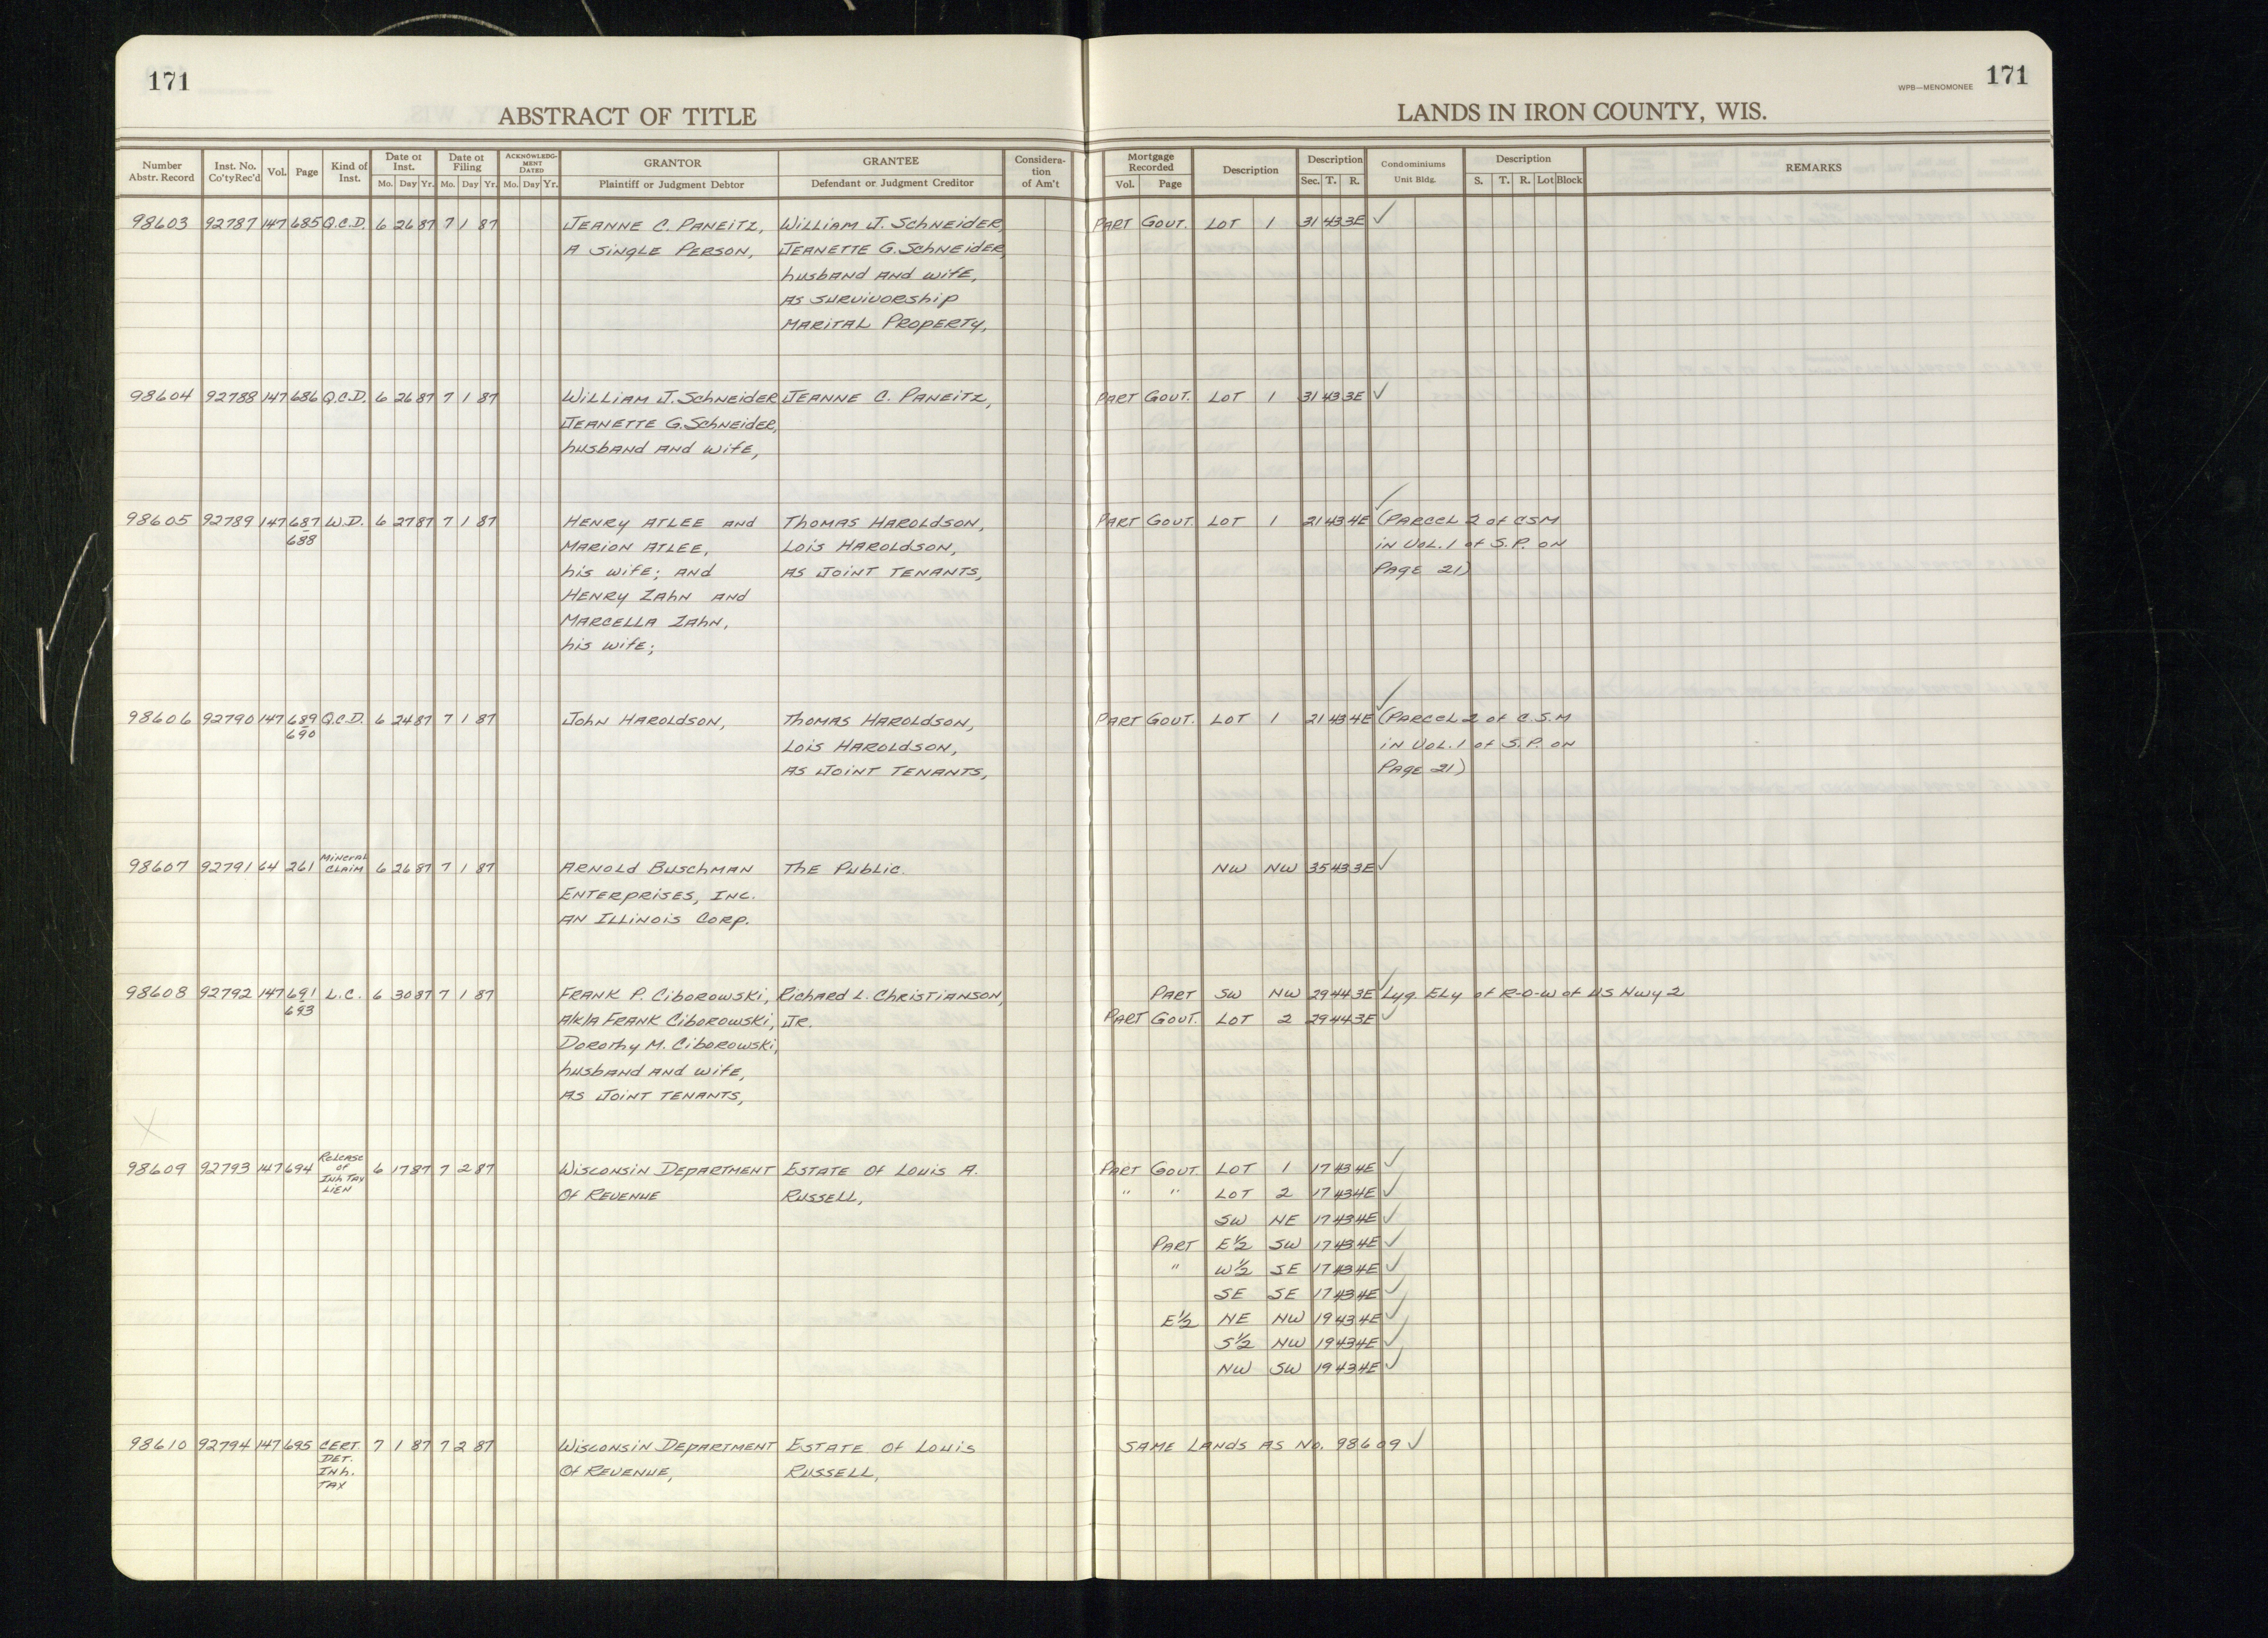 171
171
WPB—MENOMONEE
ABSTRACT OF TITLE
LANDS IN IRON COUNTY, WIS.
Number Abstr. Record | Inst. No. Co'ty Rec'd | Vol. | Page | Kind of Inst. | Date of Inst. Mo. Day Yr. | Date of Filing Mo. Day Yr. | ACKNOWLEDGMENT DATED Mo. Day Yr. | GRANTOR Plaintiff or Judgment Debtor | GRANTEE Defendant or Judgment Creditor | Consideration of Am't | Mortgage Recorded Vol. Page | Description | Description Sec. T. R. | Condominiums Unit Bldg. | Description S. T. R. Lot Block | REMARKS
98603 92787 147 685 Q.C.D. 6 26 87 7 1 87 JEANNE C. PANEITZ, WILLIAM J. SCHNEIDER, PART GOVT. LOT 1 31 43 3E ✓
A SINGLE PERSON, JEANETTE G. SCHNEIDER,
husband and wife,
AS SURVIVORSHIP
MARITAL PROPERTY,
98604 92788 147 686 Q.C.D. 6 26 87 7 1 87 WILLIAM J. SCHNEIDER JEANNE C. PANEITZ, PART GOVT. LOT 1 31 43 3E ✓
JEANETTE G. SCHNEIDER,
husband and wife,
98605 92789 147 687 W.D. 6 27 87 7 1 87 HENRY ATLEE AND THOMAS HAROLDSON, PART GOVT. LOT 1 21 43 4E ✓ (PARCEL 2 of CSM
688 MARION ATLEE, LOIS HAROLDSON, IN VOL. 1 of S.P. ON
his wife; AND AS JOINT TENANTS, PAGE 21)
HENRY ZAHN AND
MARCELLA ZAHN,
his wife;
98606 92790 147 689 Q.C.D. 6 24 87 7 1 87 JOHN HAROLDSON, THOMAS HAROLDSON, PART GOVT. LOT 1 21 43 4E ✓ (PARCEL 2 of C.S.M
690 LOIS HAROLDSON, IN VOL. 1 of S.P. ON
AS JOINT TENANTS, PAGE 21)
98607 92791 64 261 MINERAL CLAIM 6 26 87 7 1 87 ARNOLD BUSCHMAN THE PUBLIC. NW NW 35 43 3E ✓
ENTERPRISES, INC.
AN ILLINOIS CORP.
98608 92792 147 691 L.C. 6 30 87 7 1 87 FRANK P. CIBOROWSKI, RICHARD L. CHRISTIANSON, PART SW NW 29 44 3E ✓ Lyg. ELy of R-O-W of US Hwy 2
693 A/K/A FRANK CIBOROWSKI, JR. PART GOVT. LOT 2 29 44 3E ✓
DOROTHY M. CIBOROWSKI,
husband and wife,
AS JOINT TENANTS,
98609 92793 147 694 RELEASE of INH TAX LIEN 6 17 87 7 2 87 WISCONSIN DEPARTMENT ESTATE OF LOUIS A. PART GOVT. LOT 1 17 43 4E ✓
OF REVENUE RUSSELL, " " LOT 2 17 43 4E ✓
SW NE 17 43 4E ✓
PART E½ SW 17 43 4E ✓
" W½ SE 17 43 4E ✓
SE SE 17 43 4E ✓
E½ NE NW 19 43 4E ✓
S½ NW 19 43 4E ✓
NW SW 19 43 4E ✓
98610 92794 147 695 CERT. DET. INH. TAX 7 1 87 7 2 87 WISCONSIN DEPARTMENT ESTATE OF LOUIS SAME LANDS AS NO. 98609 ✓
OF REVENUE, RUSSELL,